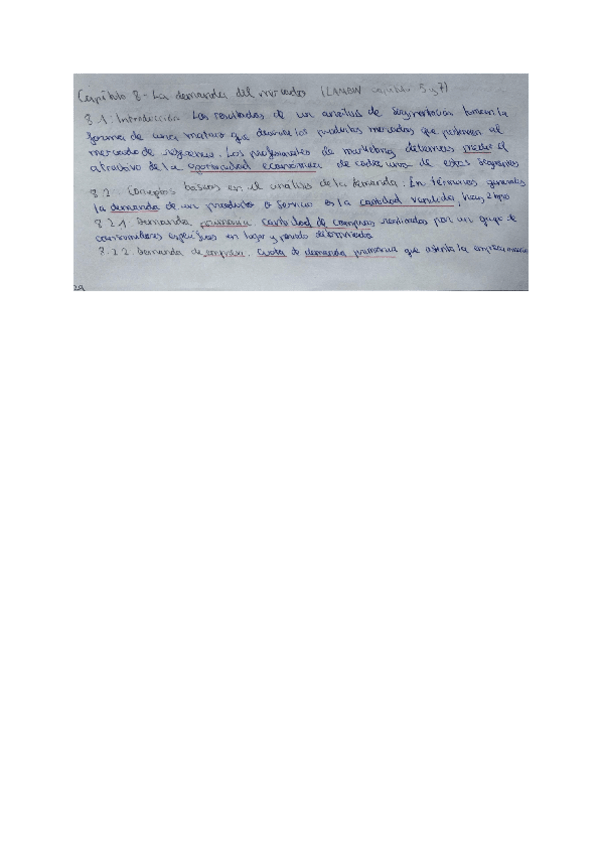 Capítulo 8- La demanda del mercado (LAMBIN capítulos 5 y 7)
8.1. Introducción. Los resultados de un análisis de segmentación toman la
forma de una matriz que describe los productos mercados que pertenecen al
mercado de referencia. Los profesionales de marketing debemos medir el
atractivo de la oportunidad económica de cada uno de estos segmentos
8.2. Conceptos básicos en el análisis de la demanda. En términos generales
la demanda de un producto o servicio es la cantidad vendida, hay 2 tipos
8.2.1. Demanda primaria cantidad de compras realizadas por un grupo de
consumidores específicos en lugar y periodo determinados
8.2.2. Demanda de empresa. Cuota de demanda primaria que ostenta la empresa
29